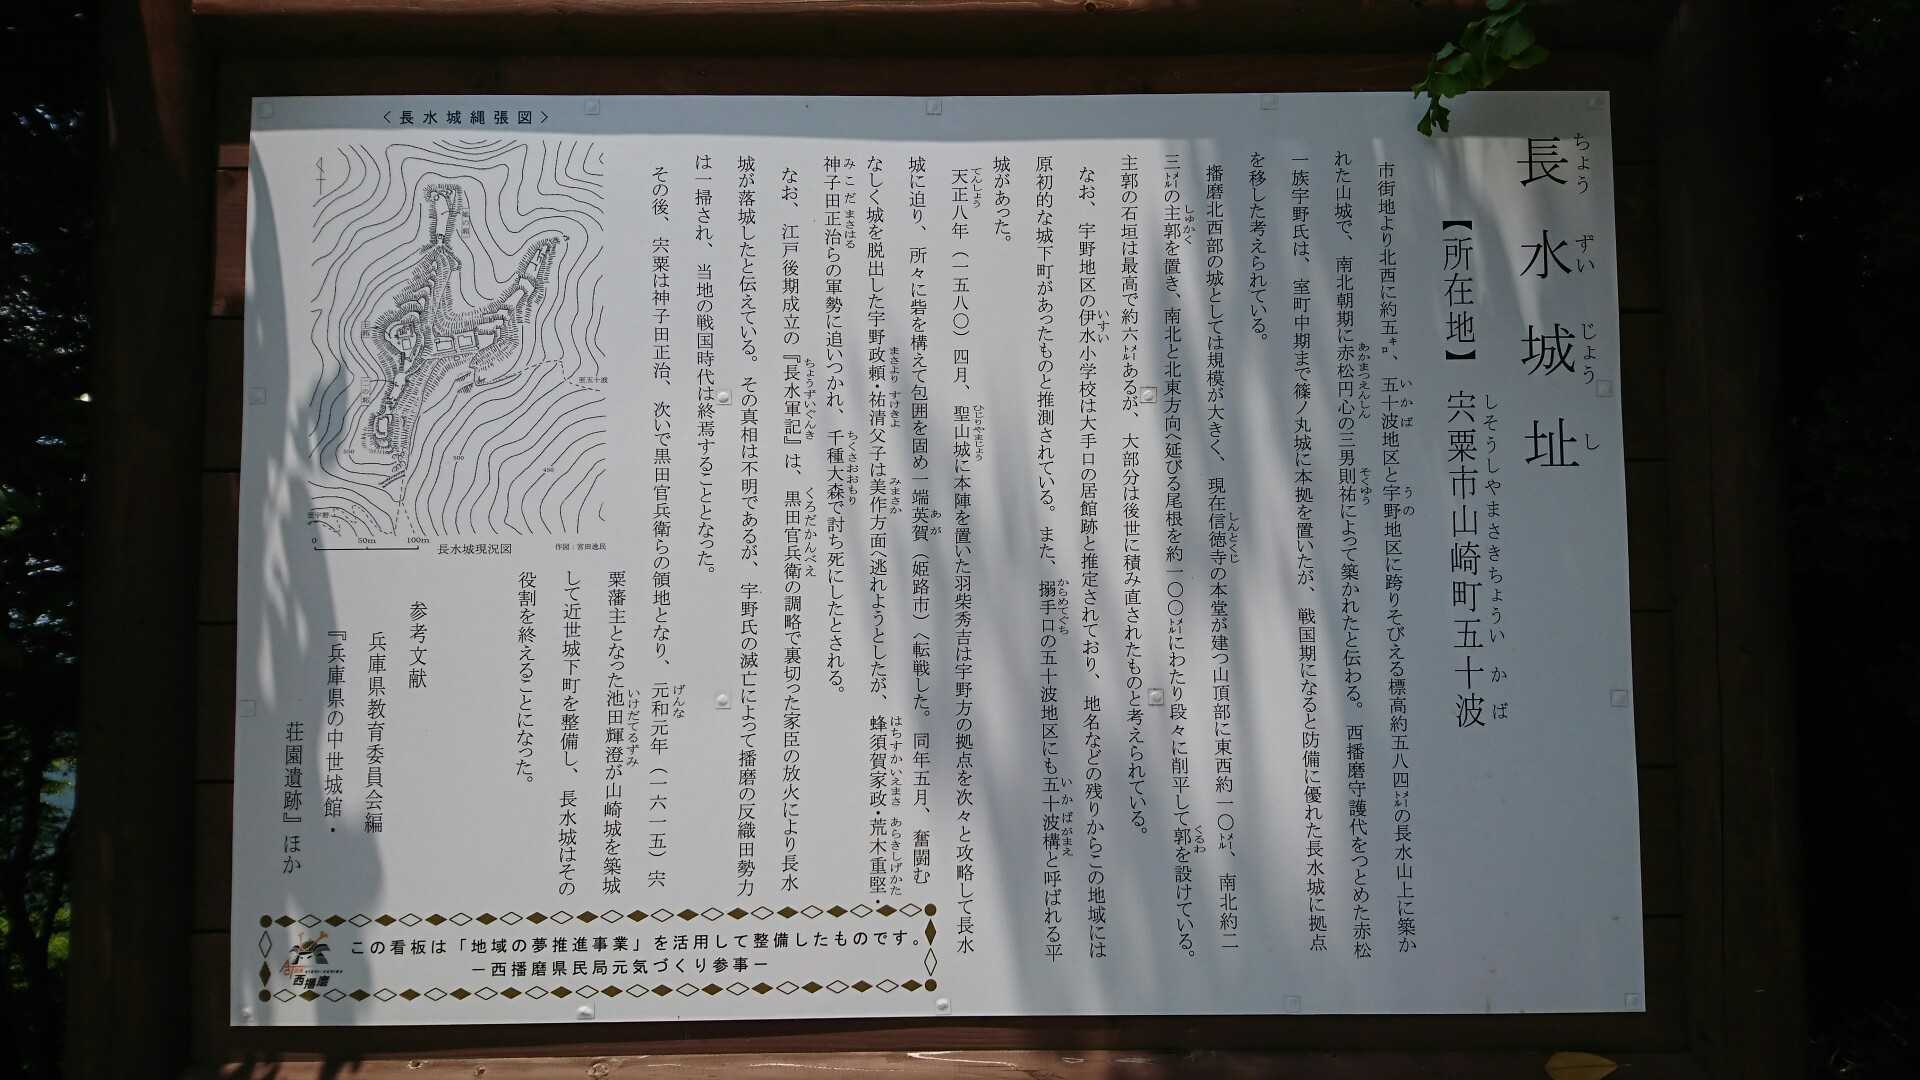 長水城址
ちょうずいじょうし
【所在地】 宍粟市山崎町五十波
しそうしやまさきちょういかば
市街地より北西に約五㌔、五十波地区と宇野地区に跨りそびえる標高約五八四㍍の長水山上に築か
れた山城で、南北朝期に赤松円心の三男則祐によって築かれたと伝わる。西播磨守護代をつとめた赤松
一族宇野氏は、室町中期まで篠ノ丸城に本拠を置いたが、戦国期になると防備に優れた長水城に拠点
を移した考えられている。
播磨北西部の城としては規模が大きく、現在信徳寺の本堂が建つ山頂部に東西約一〇㍍、南北約二
三㍍の主郭を置き、南北と北東方向へ延びる尾根を約一〇〇㍍にわたり段々に削平して郭を設けている。
主郭の石垣は最高で約六㍍あるが、大部分は後世に積み直されたものと考えられている。
なお、宇野地区の伊水小学校は大手口の居館跡と推定されており、地名などの残りからこの地域には
原初的な城下町があったものと推測されている。また、搦手口の五十波地区にも五十波構と呼ばれる平
城があった。
天正八年（一五八〇）四月、聖山城に本陣を置いた羽柴秀吉は宇野方の拠点を次々と攻略して長水
城に迫り、所々に砦を構えて包囲を固め一端英賀（姫路市）へ転戦した。同年五月、奮闘む
なしく城を脱出した宇野政頼・祐清父子は美作方面へ逃れようとしたが、蜂須賀家政・荒木重堅・
神子田正治らの軍勢に追いつかれ、千種大森で討ち死にしたとされる。
なお、江戸後期成立の『長水軍記』は、黒田官兵衛の調略で裏切った家臣の放火により長水
城が落城したと伝えている。その真相は不明であるが、宇野氏の滅亡によって播磨の反織田勢力
は一掃され、当地の戦国時代は終焉することとなった。
その後、宍粟は神子田正治、次いで黒田官兵衛らの領地となり、元和元年（一六一五）宍
粟藩主となった池田輝澄が山崎城を築城
して近世城下町を整備し、長水城はその
役割を終えることになった。
参考文献
兵庫県教育委員会編
『兵庫県の中世城館・
荘園遺跡』ほか
〈長水城縄張図〉
至五十波
至宇野
500
450
0 50m 100m
長水城現況図
作図：宮田逸民
この看板は「地域の夢推進事業」を活用して整備したものです。
－西播磨県民局元気づくり参事－
西播磨